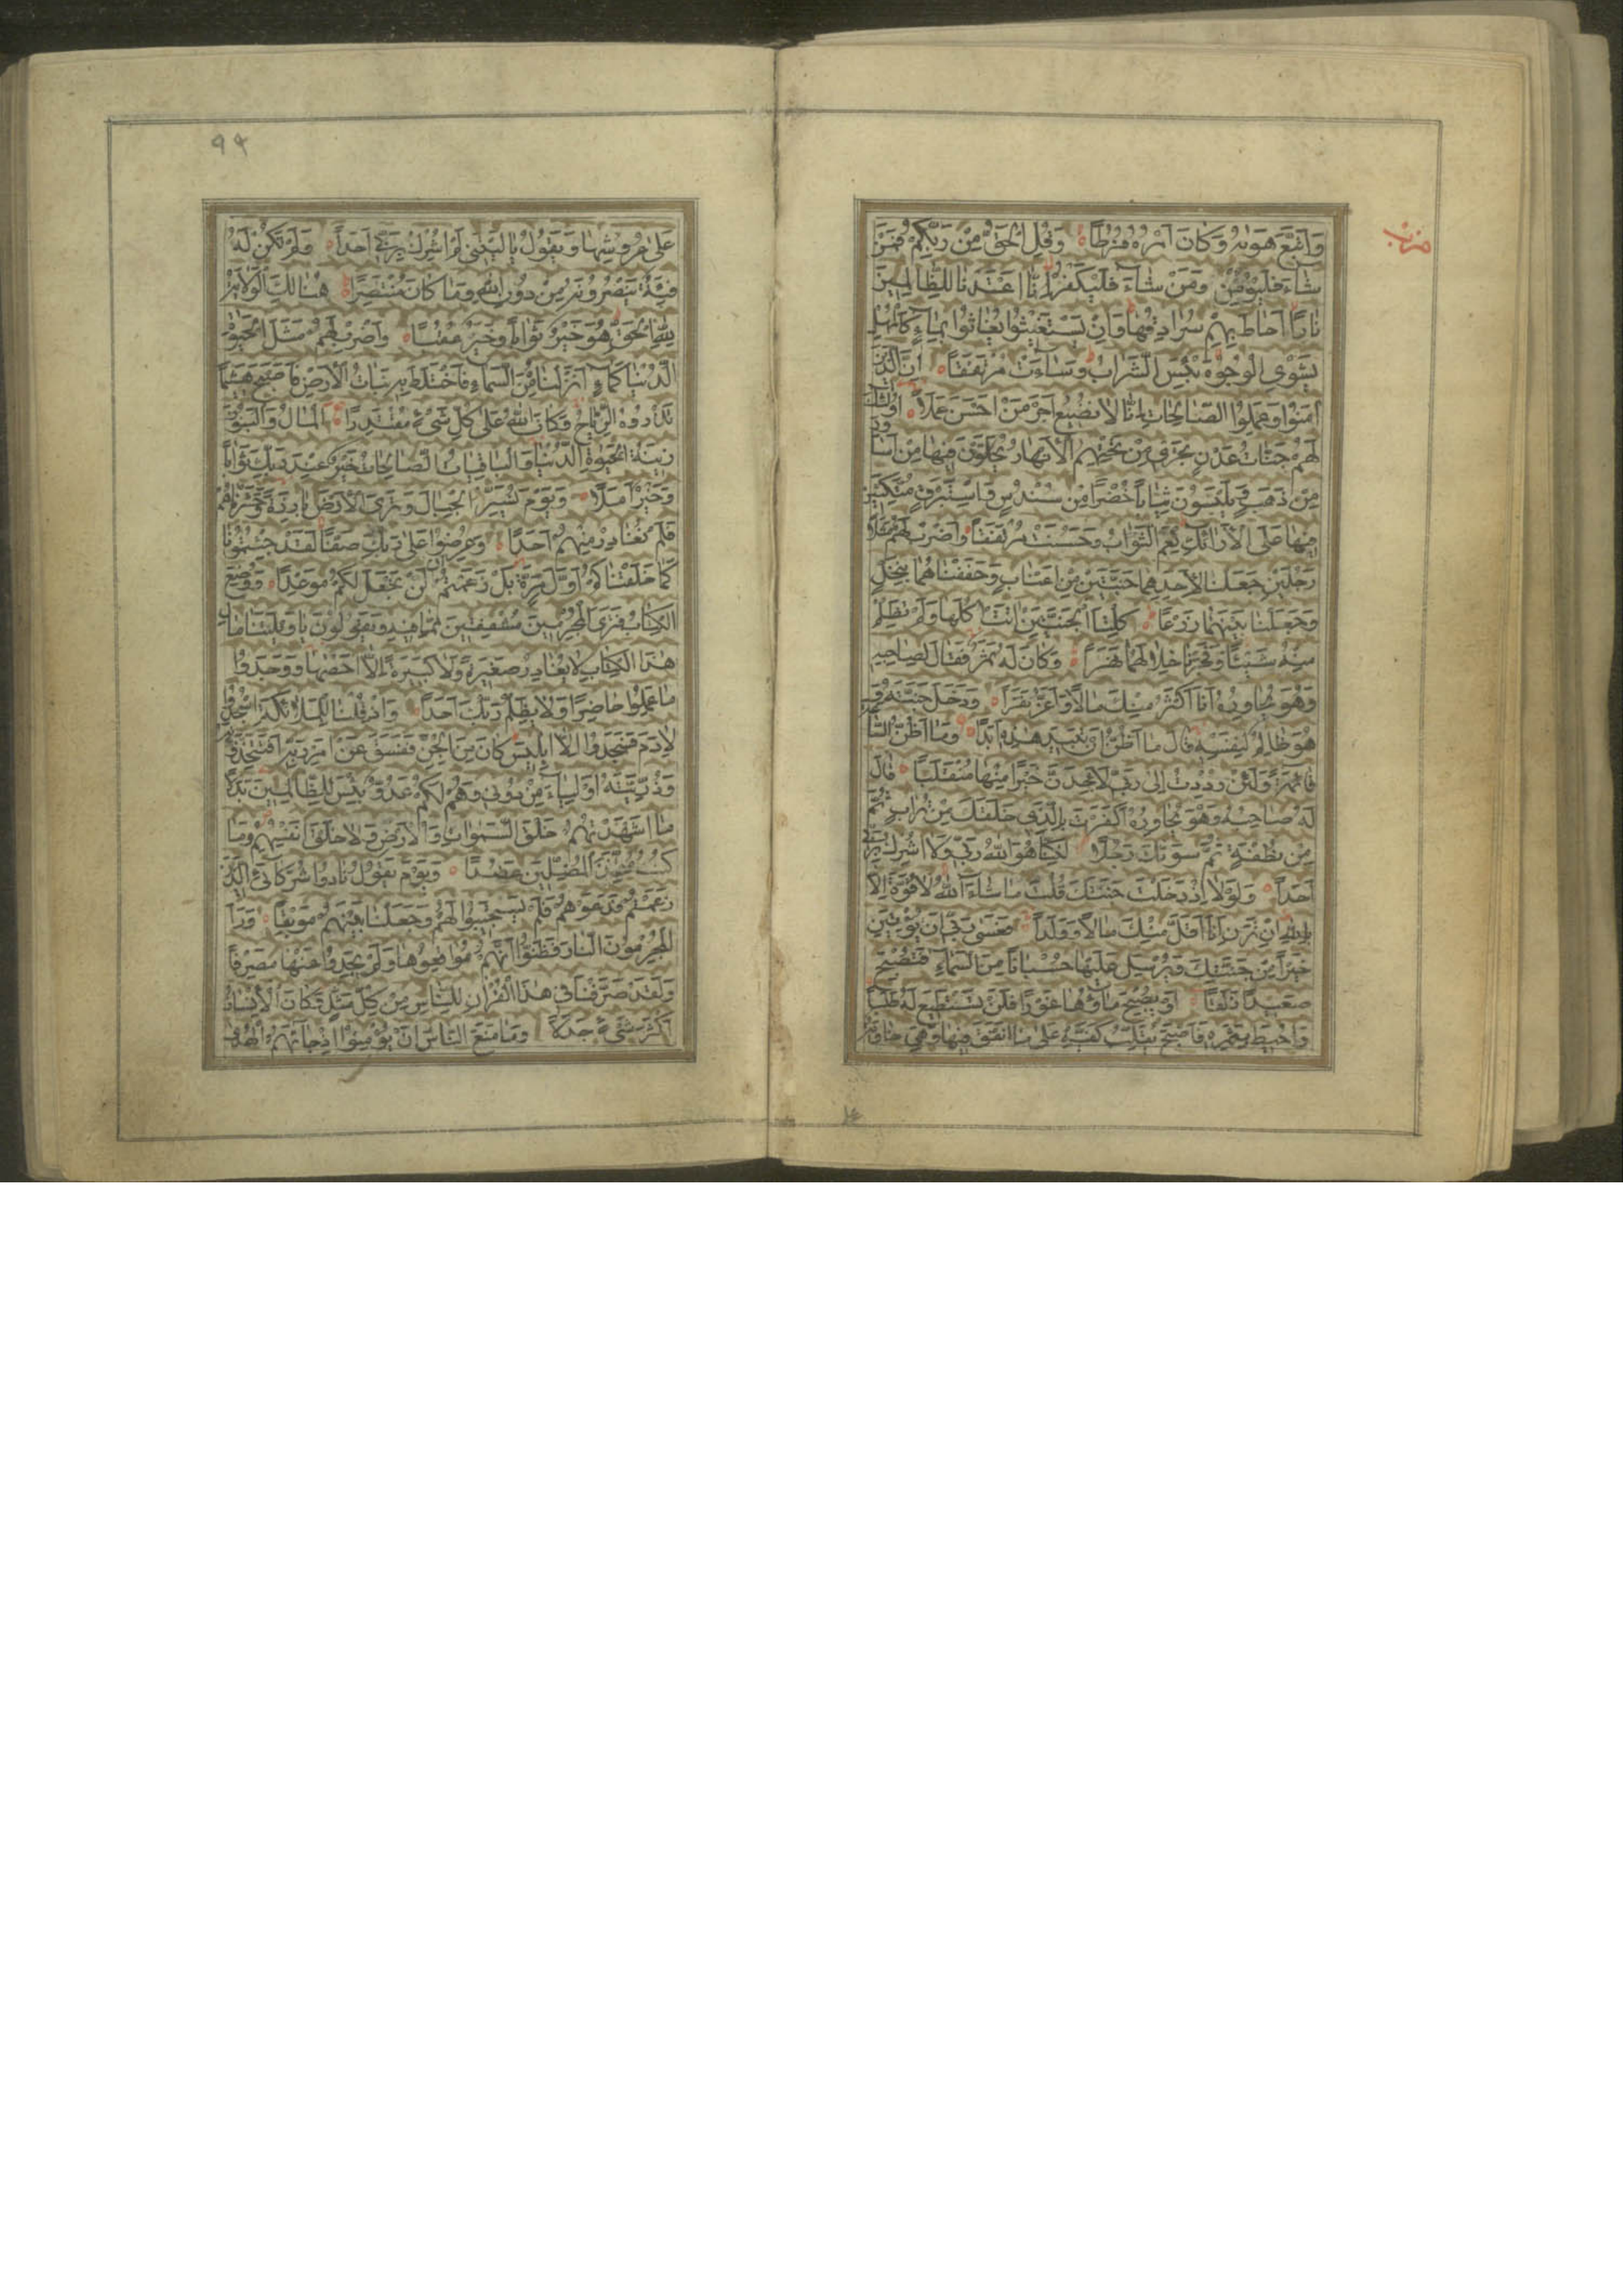 حزب
وَاتَّبَعَ هَوٰيهُ وَكَانَ اَمْرُهُ فُرُطًا وَقُلِ الْحَقُّ مِنْ رَبِّكُمْ فَمَنْ
شَاءَ فَلْيُؤْمِنْ وَمَنْ شَاءَ فَلْيَكْفُرْ اِنَّا اَعْتَدْنَا لِلظَّالِمِينَ
نَارًا اَحَاطَ بِهِمْ سُرَادِقُهَا وَاِنْ يَسْتَغِيثُوا يُغَاثُوا بِمَاءٍ كَالْمُهْلِ
يَشْوِى الْوُجُوهَ بِئْسَ الشَّرَابُ وَسَاءَتْ مُرْتَفَقًا اِنَّ الَّذِينَ
اٰمَنُوا وَعَمِلُوا الصَّالِحَاتِ اِنَّا لَا نُضِيعُ اَجْرَ مَنْ اَحْسَنَ عَمَلًا اُولٰئِكَ
لَهُمْ جَنَّاتُ عَدْنٍ تَجْرِى مِنْ تَحْتِهِمُ الْاَنْهَارُ يُحَلَّوْنَ فِيهَا مِنْ اَسَاوِرَ
مِنْ ذَهَبٍ وَيَلْبَسُونَ ثِيَابًا خُضْرًا مِنْ سُنْدُسٍ وَاِسْتَبْرَقٍ مُتَّكِئِينَ
فِيهَا عَلَى الْاَرَائِكِ نِعْمَ الثَّوَابُ وَحَسُنَتْ مُرْتَفَقًا وَاضْرِبْ لَهُمْ مَثَلًا
رَجُلَيْنِ جَعَلْنَا لِاَحَدِهِمَا جَنَّتَيْنِ مِنْ اَعْنَابٍ وَحَفَفْنَاهُمَا بِنَخْلٍ
وَجَعَلْنَا بَيْنَهُمَا زَرْعًا كِلْتَا الْجَنَّتَيْنِ اٰتَتْ اُكُلَهَا وَلَمْ تَظْلِمْ
مِنْهُ شَيْئًا وَفَجَّرْنَا خِلَالَهُمَا نَهَرًا وَكَانَ لَهُ ثَمَرٌ فَقَالَ لِصَاحِبِهِ
وَهُوَ يُحَاوِرُهُ اَنَا اَكْثَرُ مِنْكَ مَالًا وَاَعَزُّ نَفَرًا وَدَخَلَ جَنَّتَهُ وَ
هُوَ ظَالِمٌ لِنَفْسِهِ قَالَ مَا اَظُنُّ اَنْ تَبِيدَ هٰذِهِ اَبَدًا وَمَا اَظُنُّ السَّاعَةَ
قَائِمَةً وَلَئِنْ رُدِدْتُ اِلٰى رَبِّى لَاَجِدَنَّ خَيْرًا مِنْهَا مُنْقَلَبًا قَالَ
لَهُ صَاحِبُهُ وَهُوَ يُحَاوِرُهُ اَكَفَرْتَ بِالَّذِى خَلَقَكَ مِنْ تُرَابٍ ثُمَّ
مِنْ نُطْفَةٍ ثُمَّ سَوّٰيكَ رَجُلًا لٰكِنَّا هُوَ اللّٰهُ رَبِّى وَلَا اُشْرِكُ بِرَبِّى
اَحَدًا وَلَوْلَا اِذْ دَخَلْتَ جَنَّتَكَ قُلْتَ مَا شَاءَ اللّٰهُ لَا قُوَّةَ اِلَّا
بِاللّٰهِ اِنْ تَرَنِ اَنَا اَقَلَّ مِنْكَ مَالًا وَوَلَدًا فَعَسٰى رَبِّى اَنْ يُؤْتِيَنِ
خَيْرًا مِنْ جَنَّتِكَ وَيُرْسِلَ عَلَيْهَا حُسْبَانًا مِنَ السَّمَاءِ فَتُصْبِحَ
صَعِيدًا زَلَقًا اَوْ يُصْبِحَ مَاؤُهَا غَوْرًا فَلَنْ تَسْتَطِيعَ لَهُ طَلَبًا
وَاُحِيطَ بِثَمَرِهِ فَاَصْبَحَ يُقَلِّبُ كَفَّيْهِ عَلٰى مَا اَنْفَقَ فِيهَا وَهِىَ خَاوِيَةٌ
عَلٰى عُرُوشِهَا وَيَقُولُ يَا لَيْتَنِى لَمْ اُشْرِكْ بِرَبِّى اَحَدًا وَلَمْ تَكُنْ لَهُ
فِئَةٌ يَنْصُرُونَهُ مِنْ دُونِ اللّٰهِ وَمَا كَانَ مُنْتَصِرًا هُنَالِكَ الْوَلَايَةُ
لِلّٰهِ الْحَقِّ هُوَ خَيْرٌ ثَوَابًا وَخَيْرٌ عُقْبًا وَاضْرِبْ لَهُمْ مَثَلَ الْحَيٰوةِ
الدُّنْيَا كَمَاءٍ اَنْزَلْنَاهُ مِنَ السَّمَاءِ فَاخْتَلَطَ بِهِ نَبَاتُ الْاَرْضِ فَاَصْبَحَ هَشِيمًا
تَذْرُوهُ الرِّيَاحُ وَكَانَ اللّٰهُ عَلٰى كُلِّ شَىْءٍ مُقْتَدِرًا اَلْمَالُ وَالْبَنُونَ
زِينَةُ الْحَيٰوةِ الدُّنْيَا وَالْبَاقِيَاتُ الصَّالِحَاتُ خَيْرٌ عِنْدَ رَبِّكَ ثَوَابًا
وَخَيْرٌ اَمَلًا وَيَوْمَ نُسَيِّرُ الْجِبَالَ وَتَرَى الْاَرْضَ بَارِزَةً وَحَشَرْنَاهُمْ
فَلَمْ نُغَادِرْ مِنْهُمْ اَحَدًا وَعُرِضُوا عَلٰى رَبِّكَ صَفًّا لَقَدْ جِئْتُمُونَا
كَمَا خَلَقْنَاكُمْ اَوَّلَ مَرَّةٍ بَلْ زَعَمْتُمْ اَلَّنْ نَجْعَلَ لَكُمْ مَوْعِدًا وَوُضِعَ
الْكِتَابُ فَتَرَى الْمُجْرِمِينَ مُشْفِقِينَ مِمَّا فِيهِ وَيَقُولُونَ يَا وَيْلَتَنَا مَالِ
هٰذَا الْكِتَابِ لَا يُغَادِرُ صَغِيرَةً وَلَا كَبِيرَةً اِلَّا اَحْصٰيهَا وَوَجَدُوا
مَا عَمِلُوا حَاضِرًا وَلَا يَظْلِمُ رَبُّكَ اَحَدًا وَاِذْ قُلْنَا لِلْمَلٰئِكَةِ اسْجُدُوا
لِاٰدَمَ فَسَجَدُوا اِلَّا اِبْلِيسَ كَانَ مِنَ الْجِنِّ فَفَسَقَ عَنْ اَمْرِ رَبِّهِ اَفَتَتَّخِذُونَهُ
وَذُرِّيَّتَهُ اَوْلِيَاءَ مِنْ دُونِى وَهُمْ لَكُمْ عَدُوٌّ بِئْسَ لِلظَّالِمِينَ بَدَلًا
مَا اَشْهَدْتُهُمْ خَلْقَ السَّمٰوَاتِ وَالْاَرْضِ وَلَا خَلْقَ اَنْفُسِهِمْ وَمَا
كُنْتُ مُتَّخِذَ الْمُضِلِّينَ عَضُدًا وَيَوْمَ يَقُولُ نَادُوا شُرَكَائِىَ الَّذِينَ
زَعَمْتُمْ فَدَعَوْهُمْ فَلَمْ يَسْتَجِيبُوا لَهُمْ وَجَعَلْنَا بَيْنَهُمْ مَوْبِقًا وَرَاَ
الْمُجْرِمُونَ النَّارَ فَظَنُّوا اَنَّهُمْ مُوَاقِعُوهَا وَلَمْ يَجِدُوا عَنْهَا مَصْرِفًا
وَلَقَدْ صَرَّفْنَا فِى هٰذَا الْقُرْاٰنِ لِلنَّاسِ مِنْ كُلِّ مَثَلٍ وَكَانَ الْاِنْسَانُ
اَكْثَرَ شَىْءٍ جَدَلًا وَمَا مَنَعَ النَّاسَ اَنْ يُؤْمِنُوا اِذْ جَاءَهُمُ الْهُدٰى